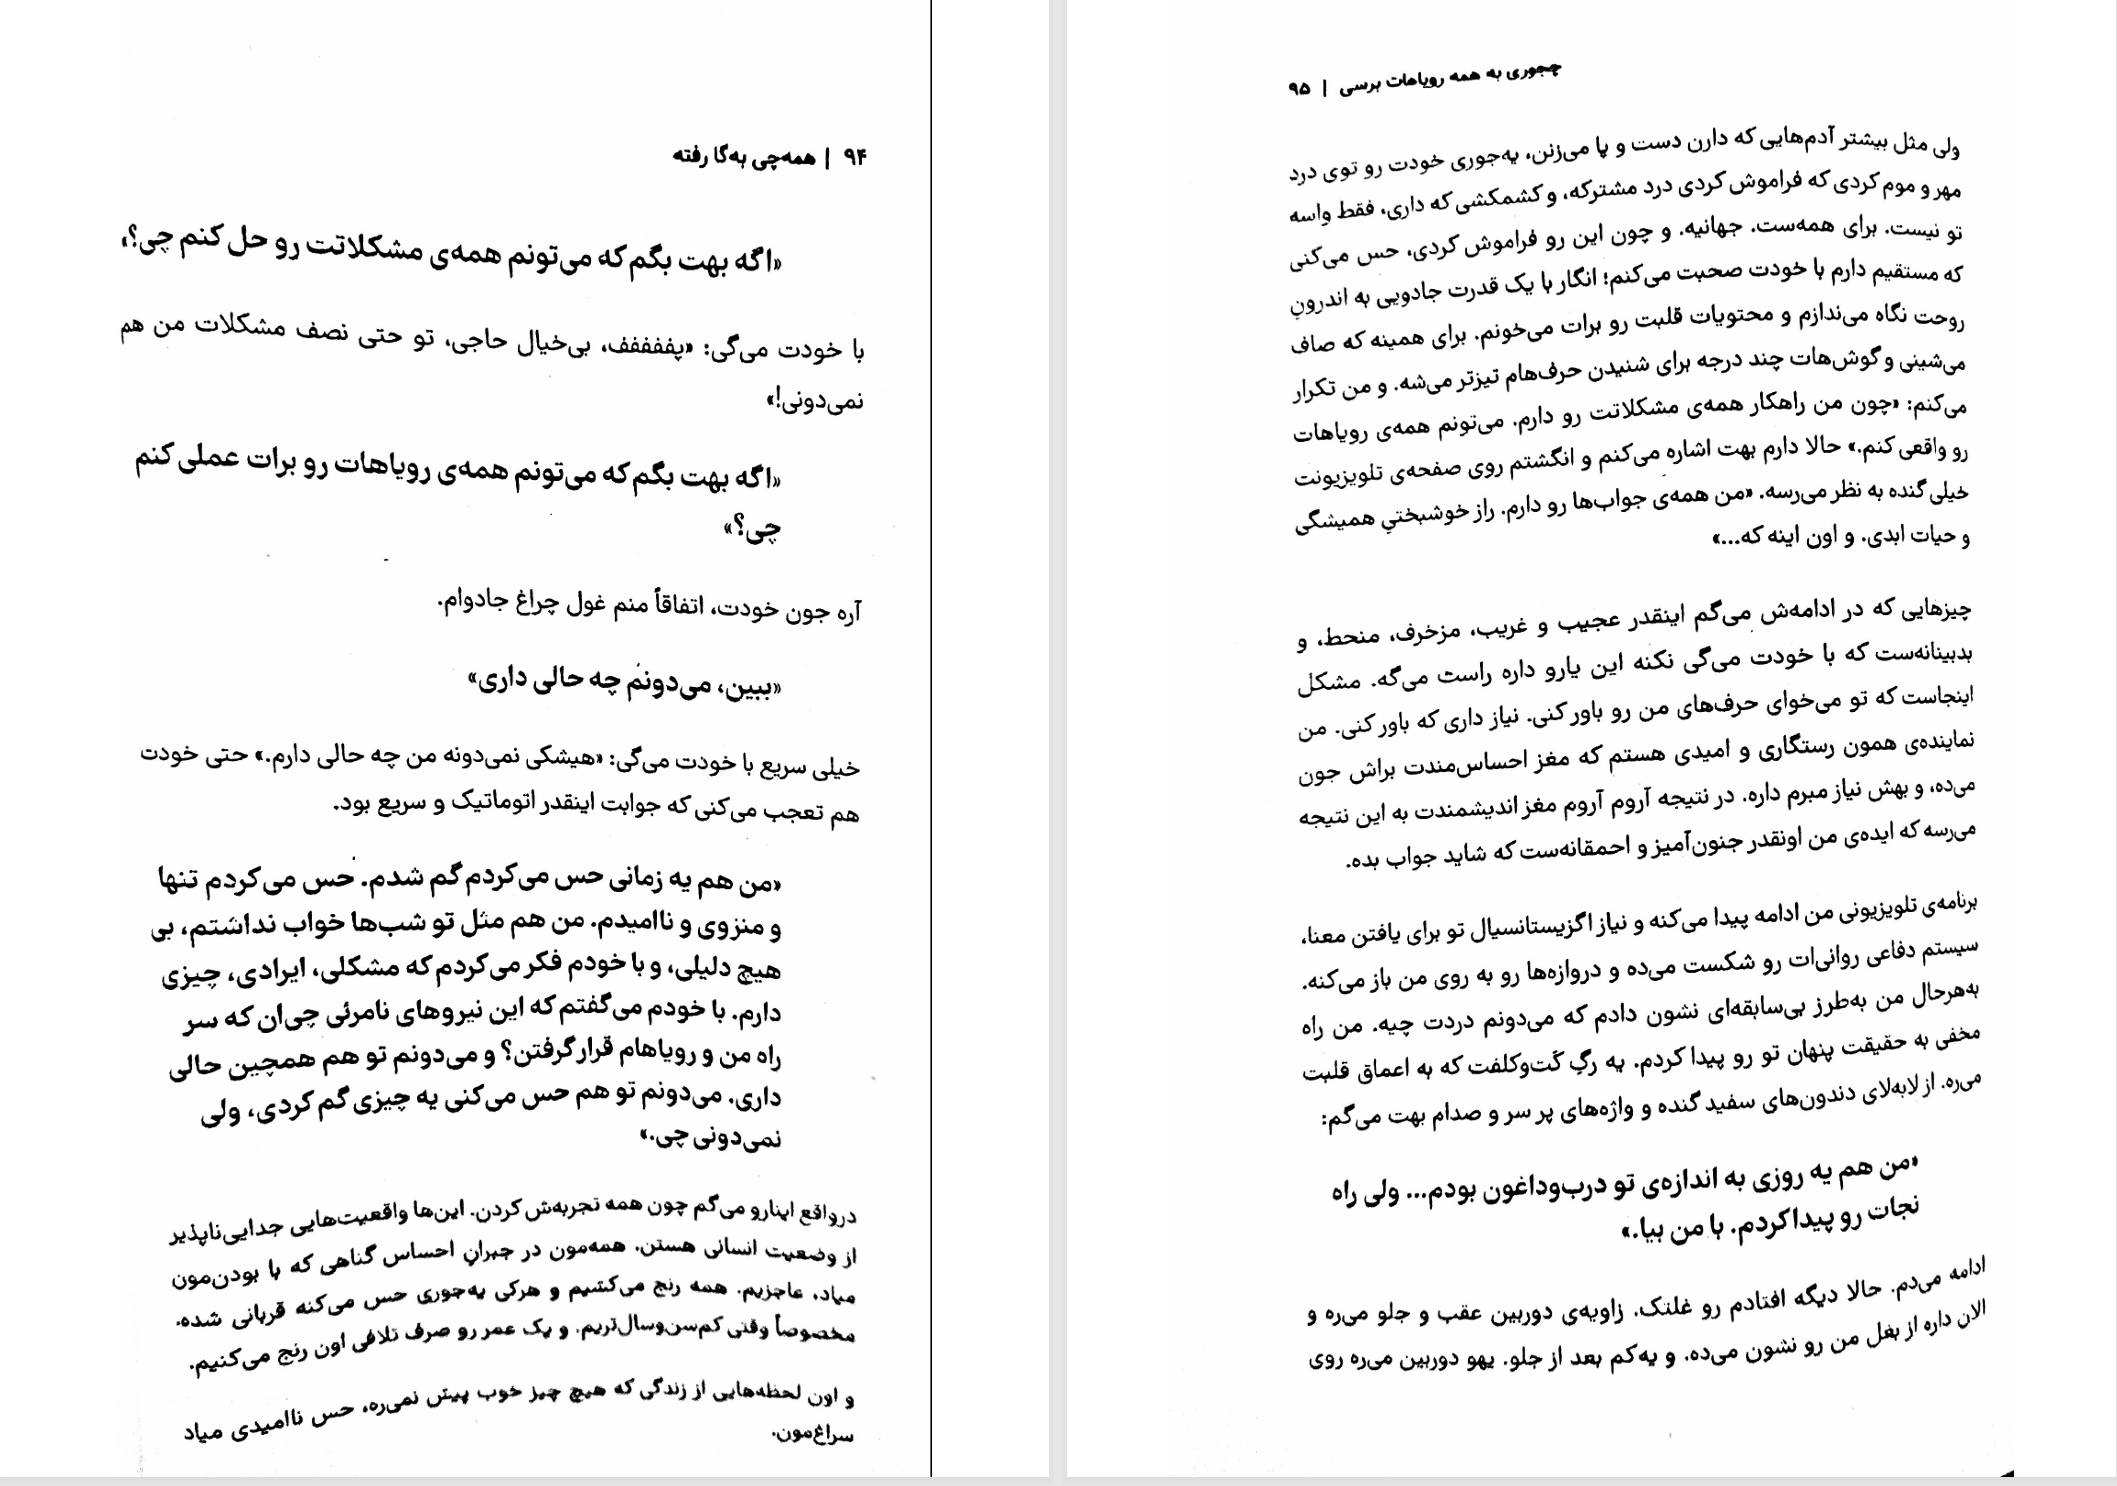 ۹۴ | همه‌چی به‌گا رفته
«اگه بهت بگم که می‌تونم همه‌ی مشکلاتت رو حل کنم چی؟»
با خودت می‌گی: «پففففف، بی‌خیال حاجی، تو حتی نصف مشکلات من هم
نمی‌دونی!»
«اگه بهت بگم که می‌تونم همه‌ی رویاهات رو برات عملی کنم
چی؟»
آره جون خودت، اتفاقاً منم غول چراغ جادوام.
«ببین، می‌دونم چه حالی داری»
خیلی سریع با خودت می‌گی: «هیشکی نمی‌دونه من چه حالی دارم.» حتی خودت
هم تعجب می‌کنی که جوابت اینقدر اتوماتیک و سریع بود.
«من هم یه زمانی حس می‌کردم گم شدم. حس می‌کردم تنها
و منزوی و ناامیدم. من هم مثل تو شب‌ها خواب نداشتم، بی
هیچ دلیلی، و با خودم فکر می‌کردم که مشکلی، ایرادی، چیزی
دارم. با خودم می‌گفتم که این نیروهای نامرئی چی‌ان که سر
راه من و رویاهام قرار گرفتن؟ و می‌دونم تو هم همچین حالی
داری. می‌دونم تو هم حس می‌کنی یه چیزی گم کردی، ولی
نمی‌دونی چی.»
درواقع اینارو می‌گم چون همه تجربه‌ش کردن. این‌ها واقعیت‌هایی جدایی‌ناپذیر
از وضعیت انسانی هستن. همه‌مون در جبرانِ احساس گناهی که با بودن‌مون
میاد، عاجزیم. همه رنج می‌کشیم و هرکی یه‌جوری حس می‌کنه قربانی شده.
مخصوصاً وقتی کم‌سن‌وسال‌تریم. و یک عمر رو صرف تلافی اون رنج می‌کنیم.
و اون لحظه‌هایی از زندگی که هیچ چیز خوب پیش نمی‌ره، حس ناامیدی میاد
سراغ‌مون.
چجوری به همه رویاهات برسی | ۹۵
ولی مثل بیشتر آدم‌هایی که دارن دست و پا می‌زنن، یه‌جوری خودت رو توی درد
مهر و موم کردی که فراموش کردی درد مشترکه، و کشمکشی که داری، فقط واسه
تو نیست. برای همه‌ست. جهانیه. و چون این رو فراموش کردی، حس می‌کنی
که مستقیم دارم با خودت صحبت می‌کنم؛ انگار با یک قدرت جادویی به اندرونِ
روحت نگاه می‌ندازم و محتویات قلبت رو برات می‌خونم. برای همینه که صاف
می‌شینی و گوش‌هات چند درجه برای شنیدن حرف‌هام تیزتر می‌شه. و من تکرار
می‌کنم: «چون من راهکار همه‌ی مشکلاتت رو دارم. می‌تونم همه‌ی رویاهات
رو واقعی کنم.» حالا دارم بهت اشاره می‌کنم و انگشتم روی صفحه‌ی تلویزیونت
خیلی گنده به نظر می‌رسه. «من همه‌ی جواب‌ها رو دارم. راز خوشبختیِ همیشگی
و حیات ابدی. و اون اینه که...»
چیزهایی که در ادامه‌ش می‌گم اینقدر عجیب و غریب، مزخرف، منحط، و
بدبینانه‌ست که با خودت می‌گی نکنه این یارو داره راست می‌گه. مشکل
اینجاست که تو می‌خوای حرف‌های من رو باور کنی. نیاز داری که باور کنی. من
نماینده‌ی همون رستگاری و امیدی هستم که مغز احساس‌مندت براش جون
می‌ده، و بهش نیاز مبرم داره. در نتیجه آروم آروم مغز اندیشمندت به این نتیجه
می‌رسه که ایده‌ی من اونقدر جنون‌آمیز و احمقانه‌ست که شاید جواب بده.
برنامه‌ی تلویزیونی من ادامه پیدا می‌کنه و نیاز اگزیستانسیال تو برای یافتن معنا،
سیستم دفاعی روانی‌ات رو شکست می‌ده و دروازه‌ها رو به روی من باز می‌کنه.
به‌هرحال من به‌طرز بی‌سابقه‌ای نشون دادم که می‌دونم دردت چیه. من راه
مخفی به حقیقت پنهان تو رو پیدا کردم. یه رگِ گت‌وکلفت که به اعماق قلبت
می‌ره. از لابه‌لای دندون‌های سفید گنده و واژه‌های پر سر و صدام بهت می‌گم:
«من هم یه روزی به اندازه‌ی تو درب‌وداغون بودم... ولی راه
نجات رو پیدا کردم. با من بیا.»
ادامه می‌دم. حالا دیگه افتادم رو غلتک. زاویه‌ی دوربین عقب و جلو می‌ره و
الان داره از بغل من رو نشون می‌ده. و یه‌کم بعد از جلو. یهو دوربین می‌ره روی